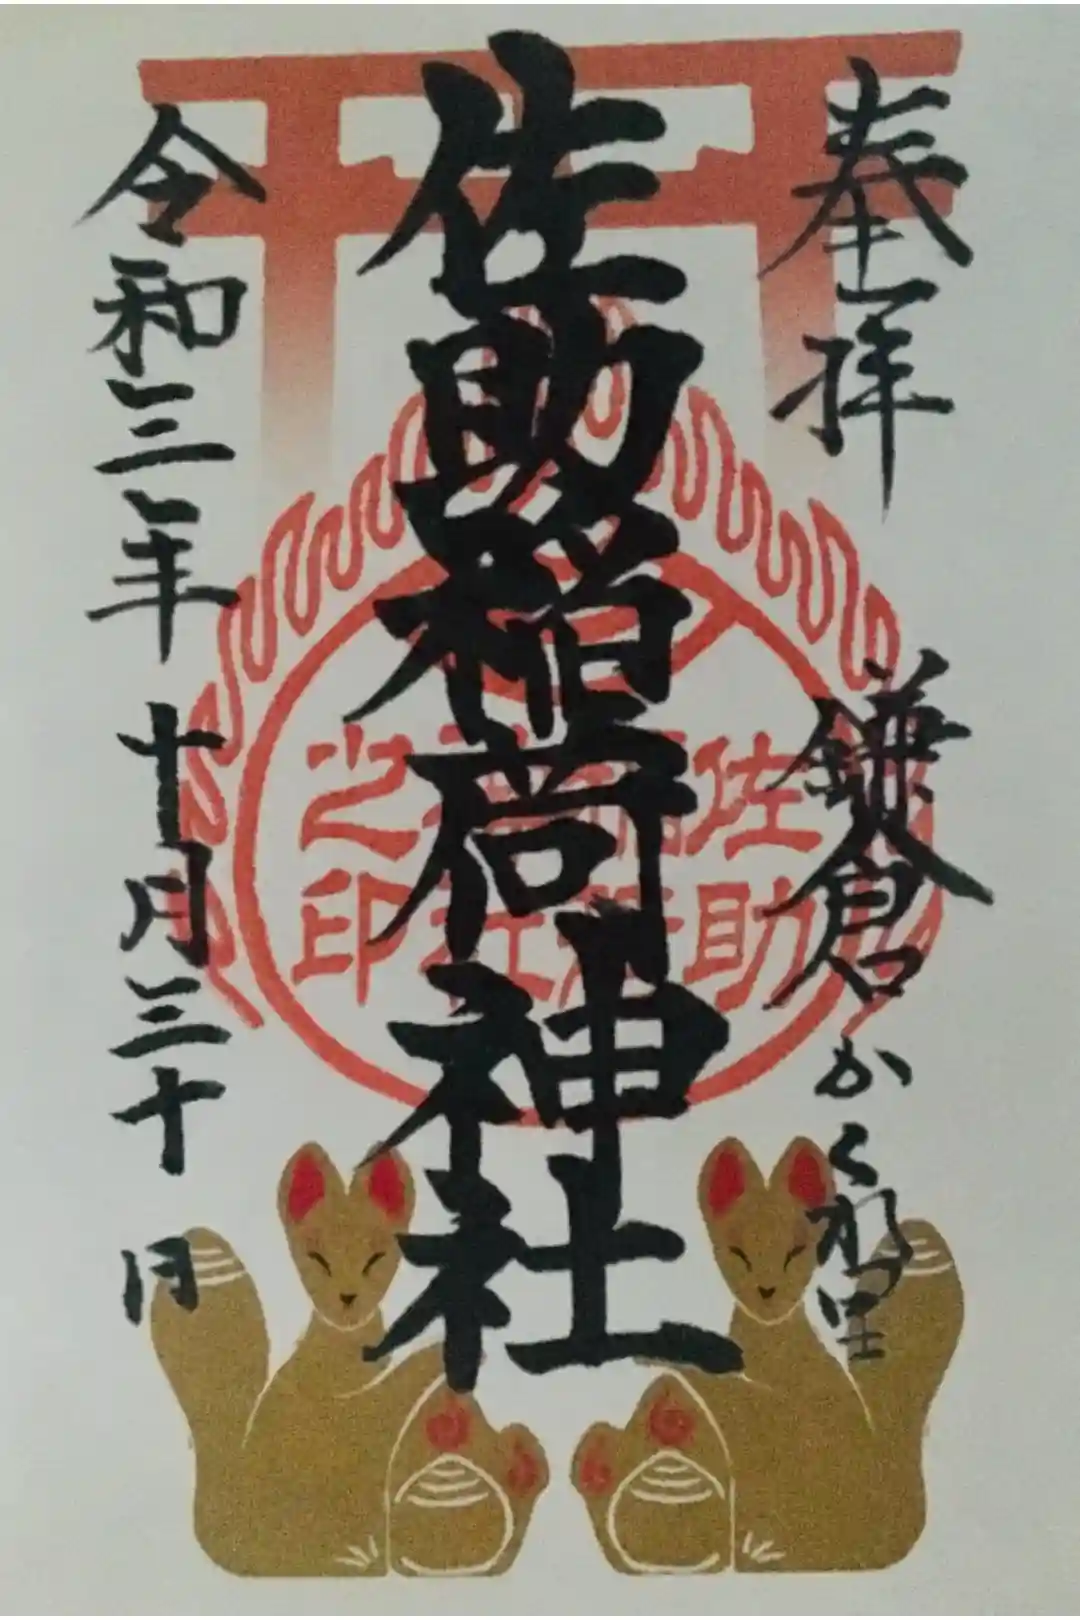 奉拝
鎌倉かくれ里
佐助稲荷神社
佐助
稲荷
神社
之印
令和三年十月三十日